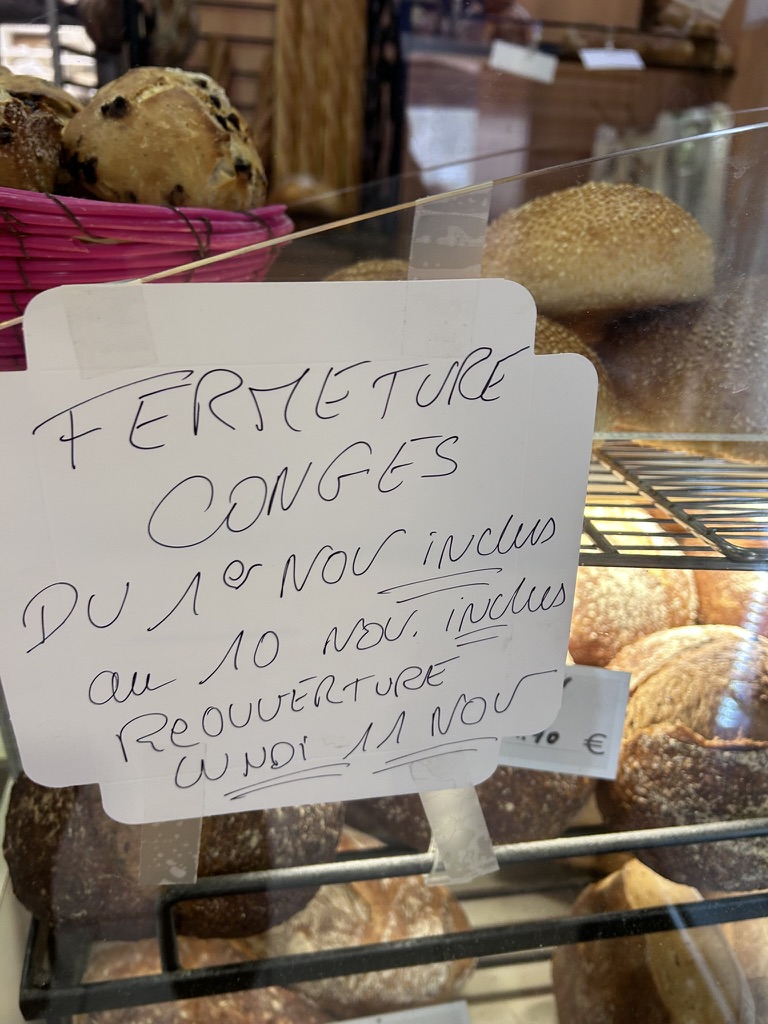 FERMETURE
CONGES
DU 1er NOV inclus
au 10 NOV. inclus
REOUVERTURE
LUNDI 11 NOV
€